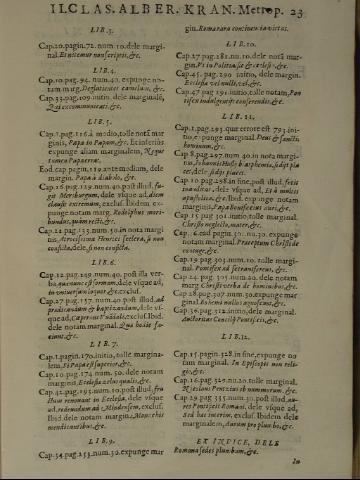 II.CLAS. ALBER. KRAN. Metrop. 23
LIB. 3.
Cap.10.pagin.72. num.10.dele margi-
nal. Et uitemur non scriptis, &c.
LIB. 4.
Cap.10.pag.94. num.40. expunge no-
tam marg. Deglutiunt camelum, &c.
Cap.33.pag.109. initio, dele marginalē,
Qui excommunicati, &c.
LIB. 5.
Cap.1.pag.116. à medio, tolle notā mar
ginis, Papa in Papam, &c. Et inferiùs
expunge aliam marginalem, Neque
tunc Papaerrat.
Eod. cap. pagin.119. ante medium, dele
margin. Papa à diabolo, &c.
Cap.16.pag.129. num.40. post illud,
git Merseburgum, dele vsque ad, dum
clause extremum, exclus. Ibidem ex-
punge notam marg. Rodolphus mori-
bundus, quam recte, &c.
Cap.21.pag.133. num.30. in nota margi
nis, Atrocissima Henrici scelera, si non
conficta, dele, si non conficta.
LIB. 6.
Cap.12.pag.149. num.40. post illa ver-
ba, quicunque essformam, dele vsque ad,
in uniuersum loquar, &c. exclus.
Cap.27.pag.157. num.40. post illud, ad
praedicandum & baptizandum, dele vs-
que ad, exclus. Ibid.
dele notam marginal. Qua hodie sa-
&c.
LIB. 7.
Cap.1.pagin.170. initio, tolle margina-
lem, Si Papa est superior, &c.
Cap.10.pag.174. num.50. dele notam
marginal. Ecclesia velut qualis, &c.
Cap.42.pag.193. num.10. post illud, fru
ctum remanent in Ecclesia, dele vsque
ad, redemendum ad Modoëtem, exclus.
Ibid. dele notam marginal. Monachis
mendicantibus, &c.
LIB. 9.
Cap.34.pag.253. num.30. expunge mar
gin. Romarara continentia victus.
LIB. 10.
Cap.27.pag.281. nu.10. dele notā mar-
gin. Pii to Politus & Ecclesia, &c.
Cap.45.pag.290. initio, dele margin.
Ecclesia vel nulli, vel, &c.
Cap.47.pag.191. initio, tolle notam, Pon
tifices indulgentijs conferendis, &c.
LIB. 11.
Cap.1.pag.293. quę error est 793. ini-
tio, expunge marginal. Deus & sancti
hominum, &c.
Cap.8.pag.297. num.40. in nota margi-
nis, Iohannis blasphemia, si dici pla-
cet, dele si dici placet.
Cap.10.pag.298. in fine, post illud, fecit
inauditae, dele vsque ad, Et à multis
apostolica, &c. Ibid. expunge notam
marginis, Papa Bonifacius auri, &c.
Cap.15.pag.301. initio, tolle marginal.
Christo neglecto, mater, &c.
Cap. 6. ead. pagin. 301. nu.30. expunge
notam marginal. Praeceptum Christi de
coniuge, &c.
Cap.19.pag.303. num.10. tolle margi-
nal. Pontifex ad se transferens, &c.
Cap.24.pag.305. num.40. dele notam
marg. Christi verba de hominibus, &c.
Cap.28.pag.307. num.30. expunge mar
ginal. Bohema mulus aquosius, &c.
Cap.36.pag.312. initio, dele marginal.
Auctoritas Concilij Pontificis, &c.
LIB. 12.
Cap.15.pagin.328. in fine, expunge no
tam marginal. In Episcopis non reli-
gio, &c.
Cap.16.pag.329. nu.20. tolle marginal.
Reiectus Pontifex ob nummorum, &c.
Cap.29.pag.335. num.30. post illud, au-
res Pontificis Romani, dele vsque ad,
Sed hac breuiter, exclus. Ibid. dele
marginalem, duriora pro plumbo, &c.
EX INDICE, DELE
Roma sedes plumbum, &c.
In